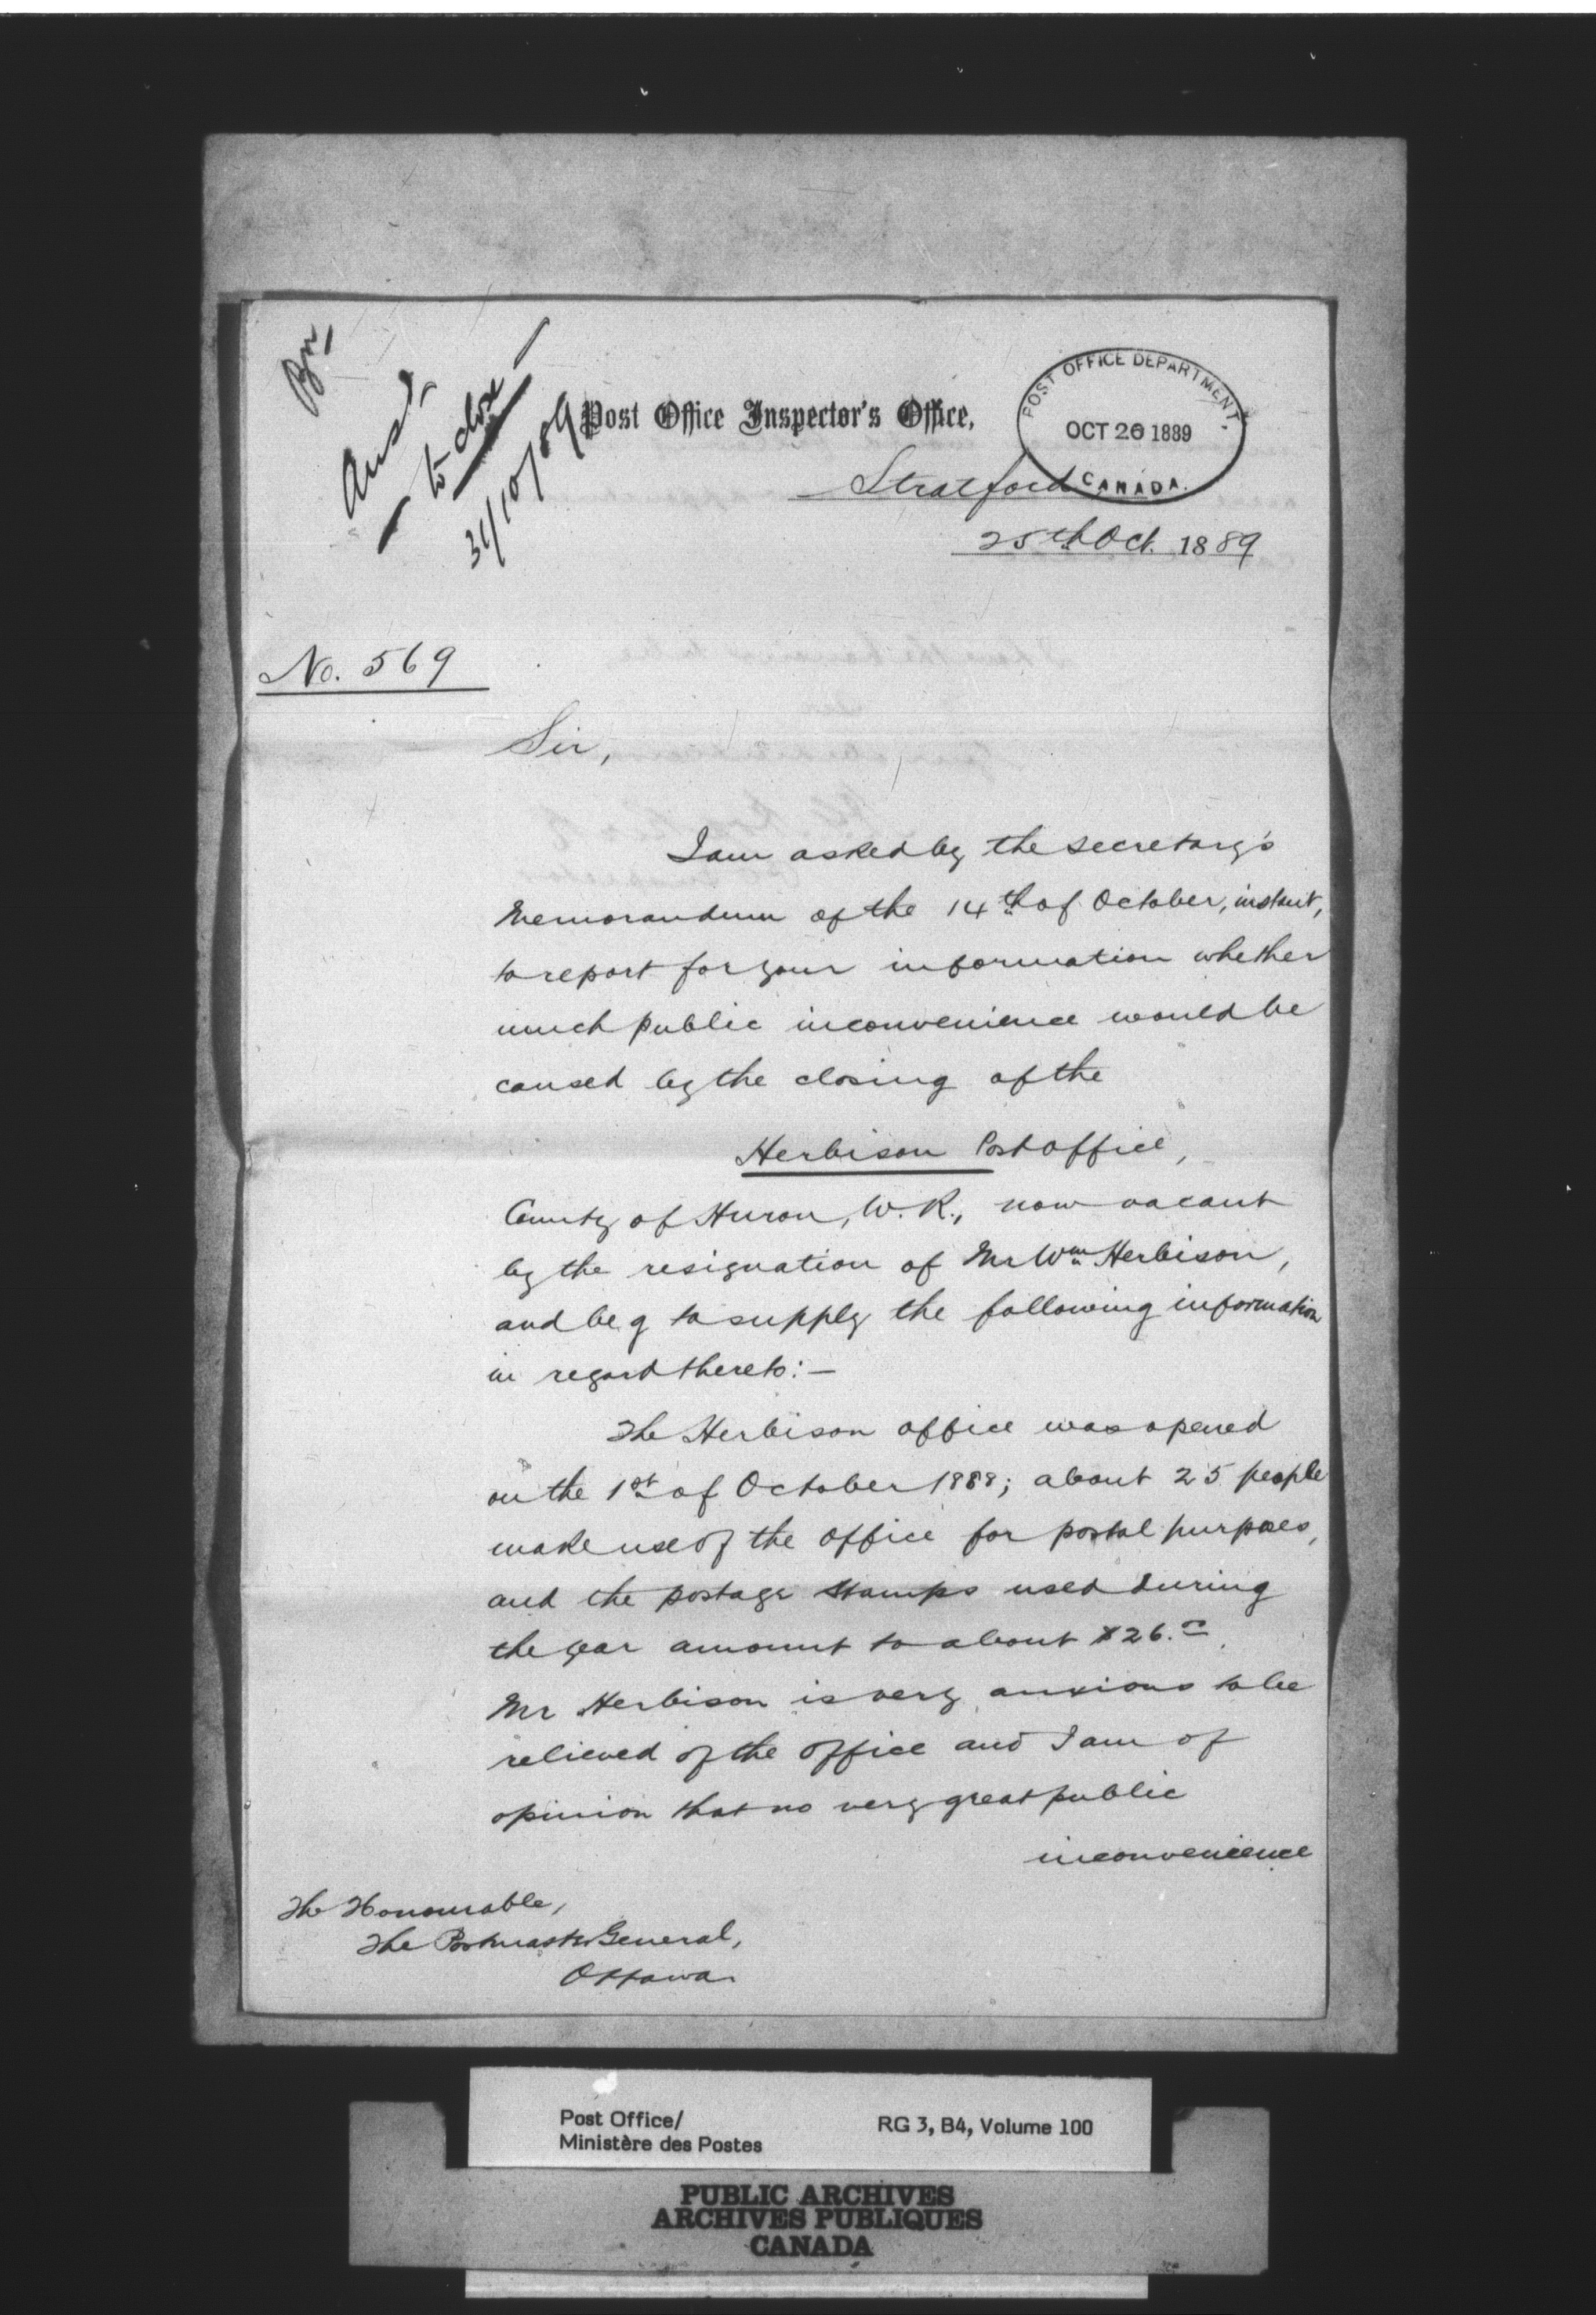 Ans'
to close
31/10/89
Post Office Inspector's Office,
POST OFFICE DEPARTMENT,
OCT 26 1889
CANADA.
Stratford
25th Oct. 1889
No. 569
Sir,
I am asked by the Secretary's
Memorandum of the 14th of October, instant,
to report for your information whether
much public inconvenience would be
caused by the closing of the
Herbison Post Office,
County of Huron, W.R., now vacant
by the resignation of Mr Wm Herbison,
and beg to supply the following information
in regard thereto:—
The Herbison office was opened
on the 1st of October 1888; about 25 people
make use of the office for postal purposes,
and the postage stamps used during
the year amount to about $26.00
Mr Herbison is very anxious to be
relieved of the office and I am of
opinion that no very great public
inconvenience
The Honourable,
The Postmaster General,
Ottawa.
Post Office/
Ministère des Postes
RG 3, B4, Volume 100
PUBLIC ARCHIVES
ARCHIVES PUBLIQUES
CANADA